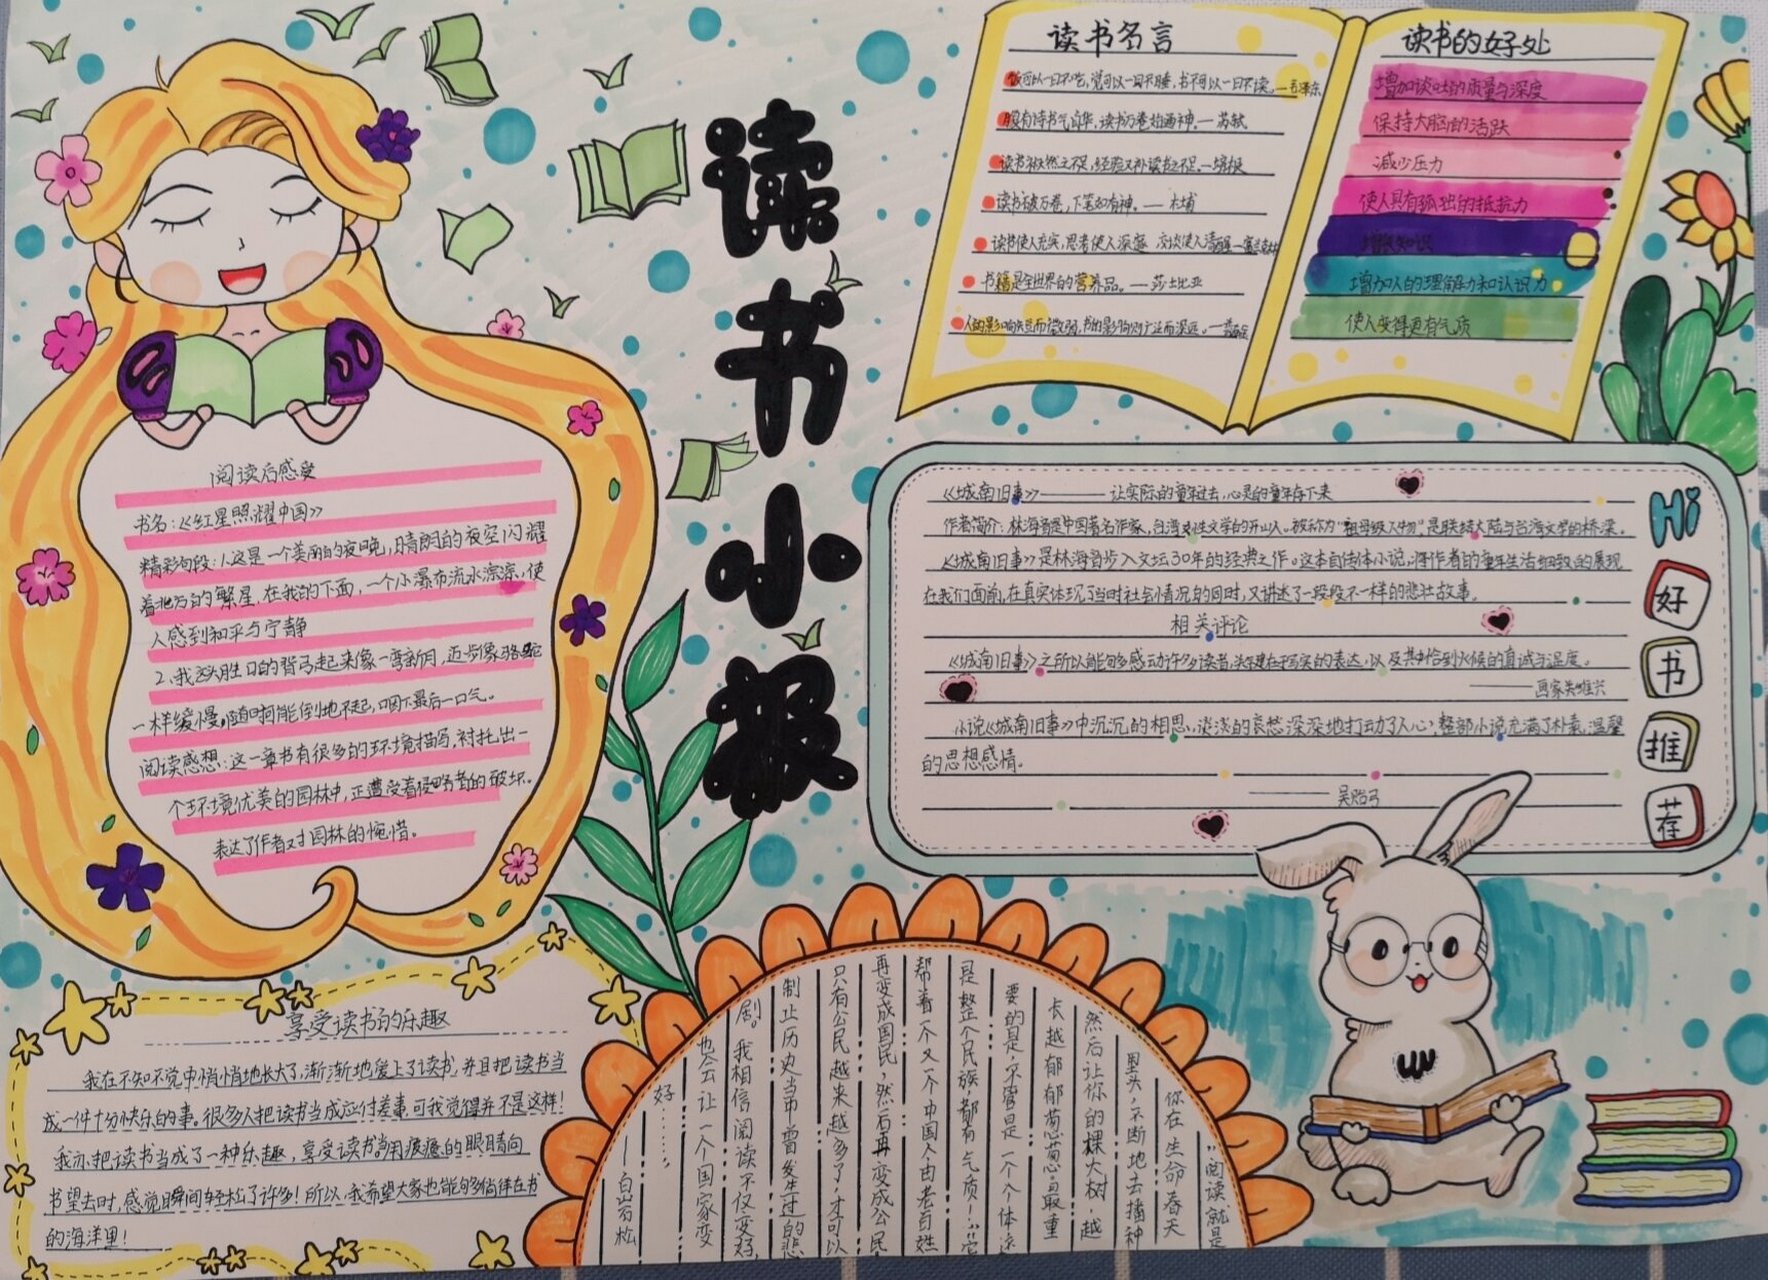 读书小报
阅读后感受
书名:《红星照耀中国》
精彩句段:1.这是一个美丽的夜晚,晴朗的夜空闪耀
着北方的繁星,在我的下面,一个小瀑布流水淙淙,使
人感到和平与宁静
2.我
的背弓起来像一弯新月,迈步像骆驼
一样缓慢,随时可能倒地不起,咽下最后一口气。
阅读感想:这一章书有很多的环境描写,衬托出一
个环境优美的园林中,正遭受着侵略者的破坏。
表达了作者对园林的惋惜。
享受读书的乐趣
我在不知不觉中悄悄地长大了,渐渐地爱上了读书,并且把读书当
成一件十分快乐的事。很多人把读书当成应付差事,可我觉得并不是这样!
我亦把读书当成了一种乐趣,享受读书。当用疲惫的眼睛向
书望去时,感觉瞬间轻松了许多!所以,我希望大家也能够徜徉在书
的海洋里!
读书名言
饭可以一日不吃,觉可以一日不睡,书不可以一日不读。—毛泽东
腹有诗书气自华,读书万卷始通神。—苏轼
读书补天然之不足,经验又补读书之不足。—培根
读书破万卷,下笔如有神。—杜甫
读书使人充实,思考使人深邃,交谈使人清醒—富兰克林
书籍是全世界的营养品。—莎士比亚
人的影响短暂而微弱,书的影响则广泛而深远。—普希金
读书的好处
增加谈吐的质量与深度
保持大脑的活跃
减少压力
使人具有孤独的抵抗力
增长知识
增加人的理解力和认识力
使人变得更有气质
《城南旧事》——让实际的童年过去,心灵的童年存下来
作者简介:林海音是中国著名作家,台湾女性文学的开山人。被称为“祖母级人物”是联接大陆与台湾文学的桥梁。
《城南旧事》是林海音步入文坛30年的经典之作。这本自传体小说,将作者的童年生活细致的展现
在我们面前,在真实体现了当时社会情况的同时,又讲述了一段段不一样的悲壮故事。
相关评论
《城南旧事》之所以能够感动许多读者,关键在于写实的表达,以及其中恰到火候的真诚与温度。
——画家关维兴
小说《城南旧事》中沉沉的相思、淡淡的哀愁深深地打动了人心,整部小说充满了朴素、温馨
的思想感情。
——吴贻弓
Hi
好
书
推
荐
“阅读就是
你在生命春天
里头,不断地去播种
然后让你的棵大树,越
长越郁郁葱葱,最重
要的是,不需是一个个体这
是整个民族,都有气质!”它
帮着一个又一个中国人,由老百姓
再变成国民,然后再变成公民
只有公民越来越多了,才可以
制止历史当中曾发生过的悲
剧。我相信阅读不仅变好,
也会让一个国家变
好……
——白岩松